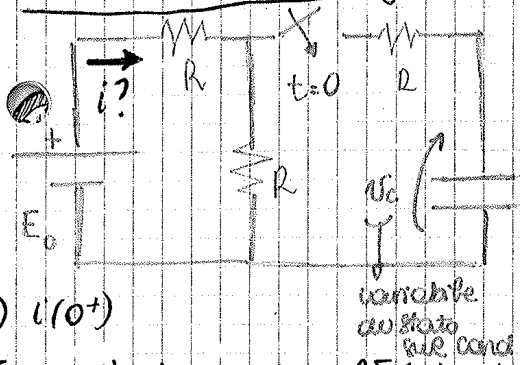 R
i?
t=0
R
+
R
Vc
E0
variabile
di stato
sul cond
) i(0⁺)